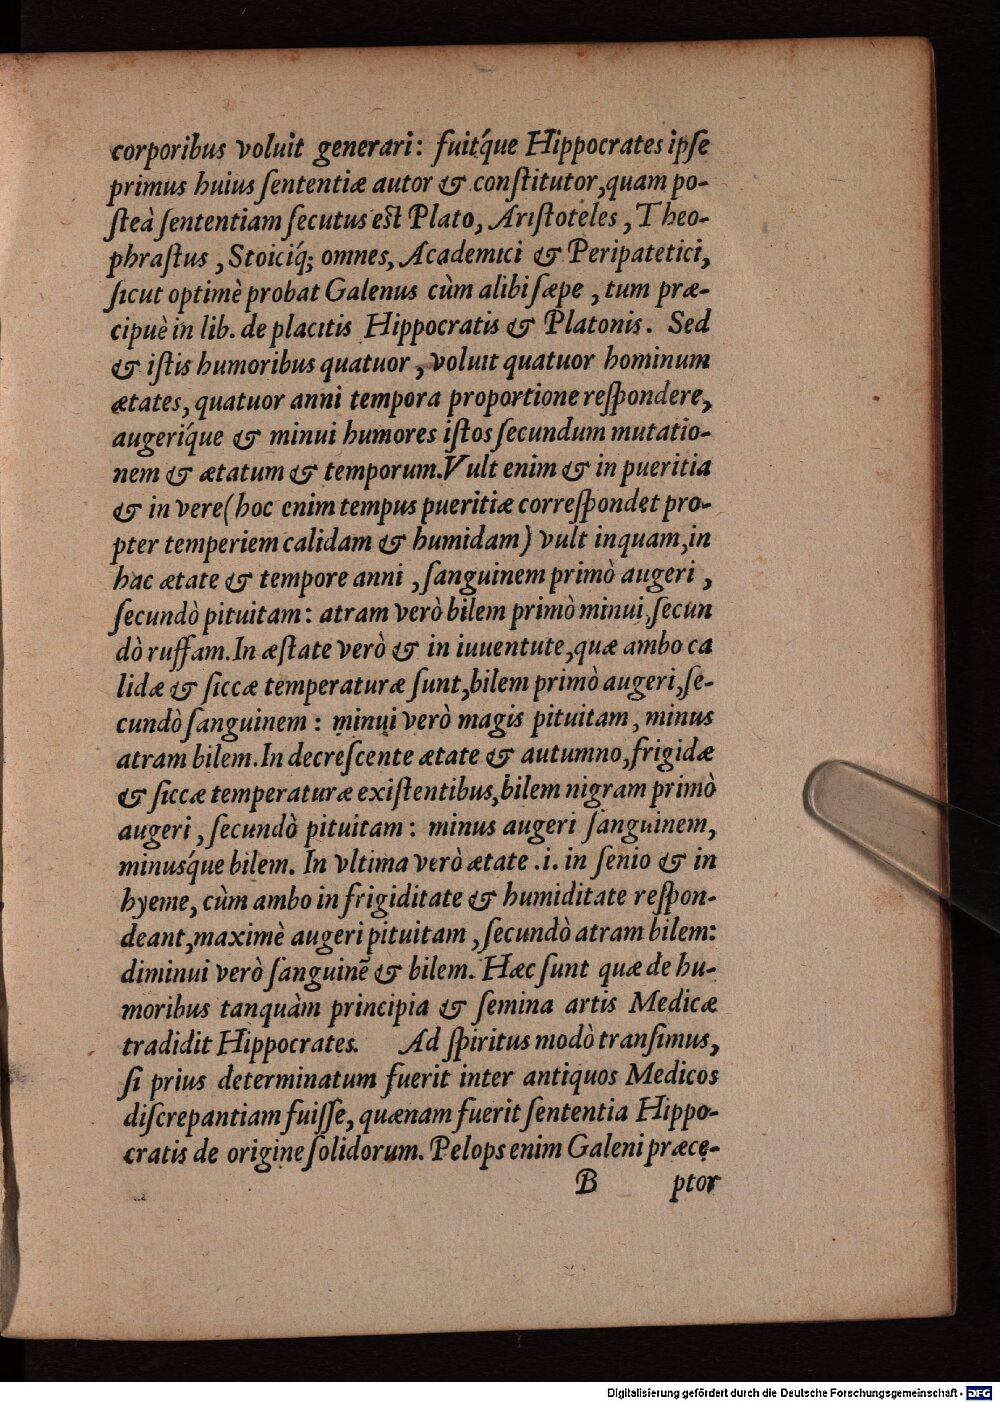 corporibus voluit generari: fuitq́ue Hippocrates ipſe
primus huius ſententiæ autor & conſtitutor, quam po-
ſteà ſententiam ſecutus est Plato, Ariſtoteles, Theo-
phraſtus, Stoiciq́; omnes, Academici & Peripatetici,
ſicut optimè probat Galenus cùm alibi ſæpe, tum præ-
cipuè in lib. de placitis Hippocratis & Platonis. Sed
& iſtis humoribus quatuor, voluit quatuor hominum
ætates, quatuor anni tempora proportione reſpondere,
augeriq́ue & minui humores iſtos ſecundum mutatio-
nem & ætatum & temporum. Vult enim & in pueritia
& in vere (hoc enim tempus pueritiæ correſpondet pro-
pter temperiem calidam & humidam) vult inquam, in
hac ætate & tempore anni, ſanguinem primò augeri,
ſecundò pituitam: atram verò bilem primò minui, ſecun
dò ruffam. In æſtate verò & in iuuentute, quæ ambo ca
lidæ & ſiccæ temperaturæ ſunt, bilem primò augeri, ſe-
cundò ſanguinem: minui verò magis pituitam, minus
atram bilem. In decreſcente ætate & autumno, frigidæ
& ſiccæ temperaturæ exiſtentibus, bilem nigram primò
augeri, ſecundò pituitam: minus augeri ſanguinem,
minusq́ue bilem. In vltima verò ætate .i. in ſenio & in
hyeme, cùm ambo in frigiditate & humiditate reſpon-
deant, maximè augeri pituitam, ſecundò atram bilem:
diminui verò ſanguinē & bilem. Hæc ſunt quæ de hu-
moribus tanquàm principia & ſemina artis Medicæ
tradidit Hippocrates. Ad ſpiritus modò tranſimus,
ſi prius determinatum fuerit inter antiquos Medicos
diſcrepantiam fuiſſe, quænam fuerit ſententia Hippo-
cratis de origine ſolidorum. Pelops enim Galeni præce-
B ptor
Digitalisierung gefördert durch die Deutsche Forschungsgemeinschaft - DFG